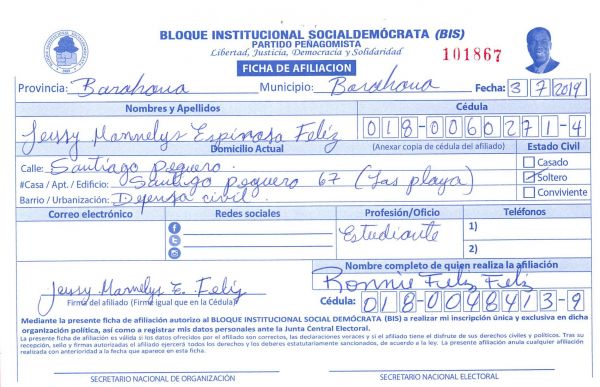 BLOQUE INSTITUCIONAL SOCIALDEMÓCRATA (BIS)
PARTIDO PEÑAGOMISTA
Libertad, Justicia, Democracia y Solidaridad
101867
FICHA DE AFILIACION
Provincia: Barahona Municipio: Barahona Fecha: 3 7 2019
Nombres y Apellidos Cédula
Jeussy Mannelys Espinosa Feliz 018-0060271-4
Domicilio Actual (Anexar copia de cédula del afiliado) Estado Civil
Calle: Santiago peguero. Casado
#Casa / Apt. / Edificio: Santiago peguero 67 (Las playa) Soltero
Barrio / Urbanización: Defensa civil. Conviviente
Correo electrónico Redes sociales Profesión/Oficio Teléfonos
Estudiante 1)
2)
Nombre completo de quien realiza la afiliación
Jeussy Mannelys E. Feliz Ronnie Feliz Feliz
Firma del afiliado (Firme igual que en la Cédula) Cédula: 018-0048413-9
Mediante la presente ficha de afiliación autorizo al BLOQUE INSTITUCIONAL SOCIAL DEMÓCRATA (BIS) a realizar mi inscripción única y exclusiva en dicha
organización política, así como a registrar mis datos personales ante la Junta Central Electoral.
La presente ficha de afiliación es válida si los datos ofrecidos por el afiliado son correctos, las declaraciones veraces y si el afiliado tiene el disfrute de sus derechos civiles y políticos. Tras su
recepción, sello y firmas autorizadas el afiliado ejercerá todos los derechos y los deberes estatutariamente sancionados, de acuerdo a la ley. La presente afiliación anula cualquier afiliación
realizada con anterioridad a la fecha que aparece en esta ficha.
SECRETARIO NACIONAL DE ORGANIZACIÓN SECRETARIO NACIONAL ELECTORAL